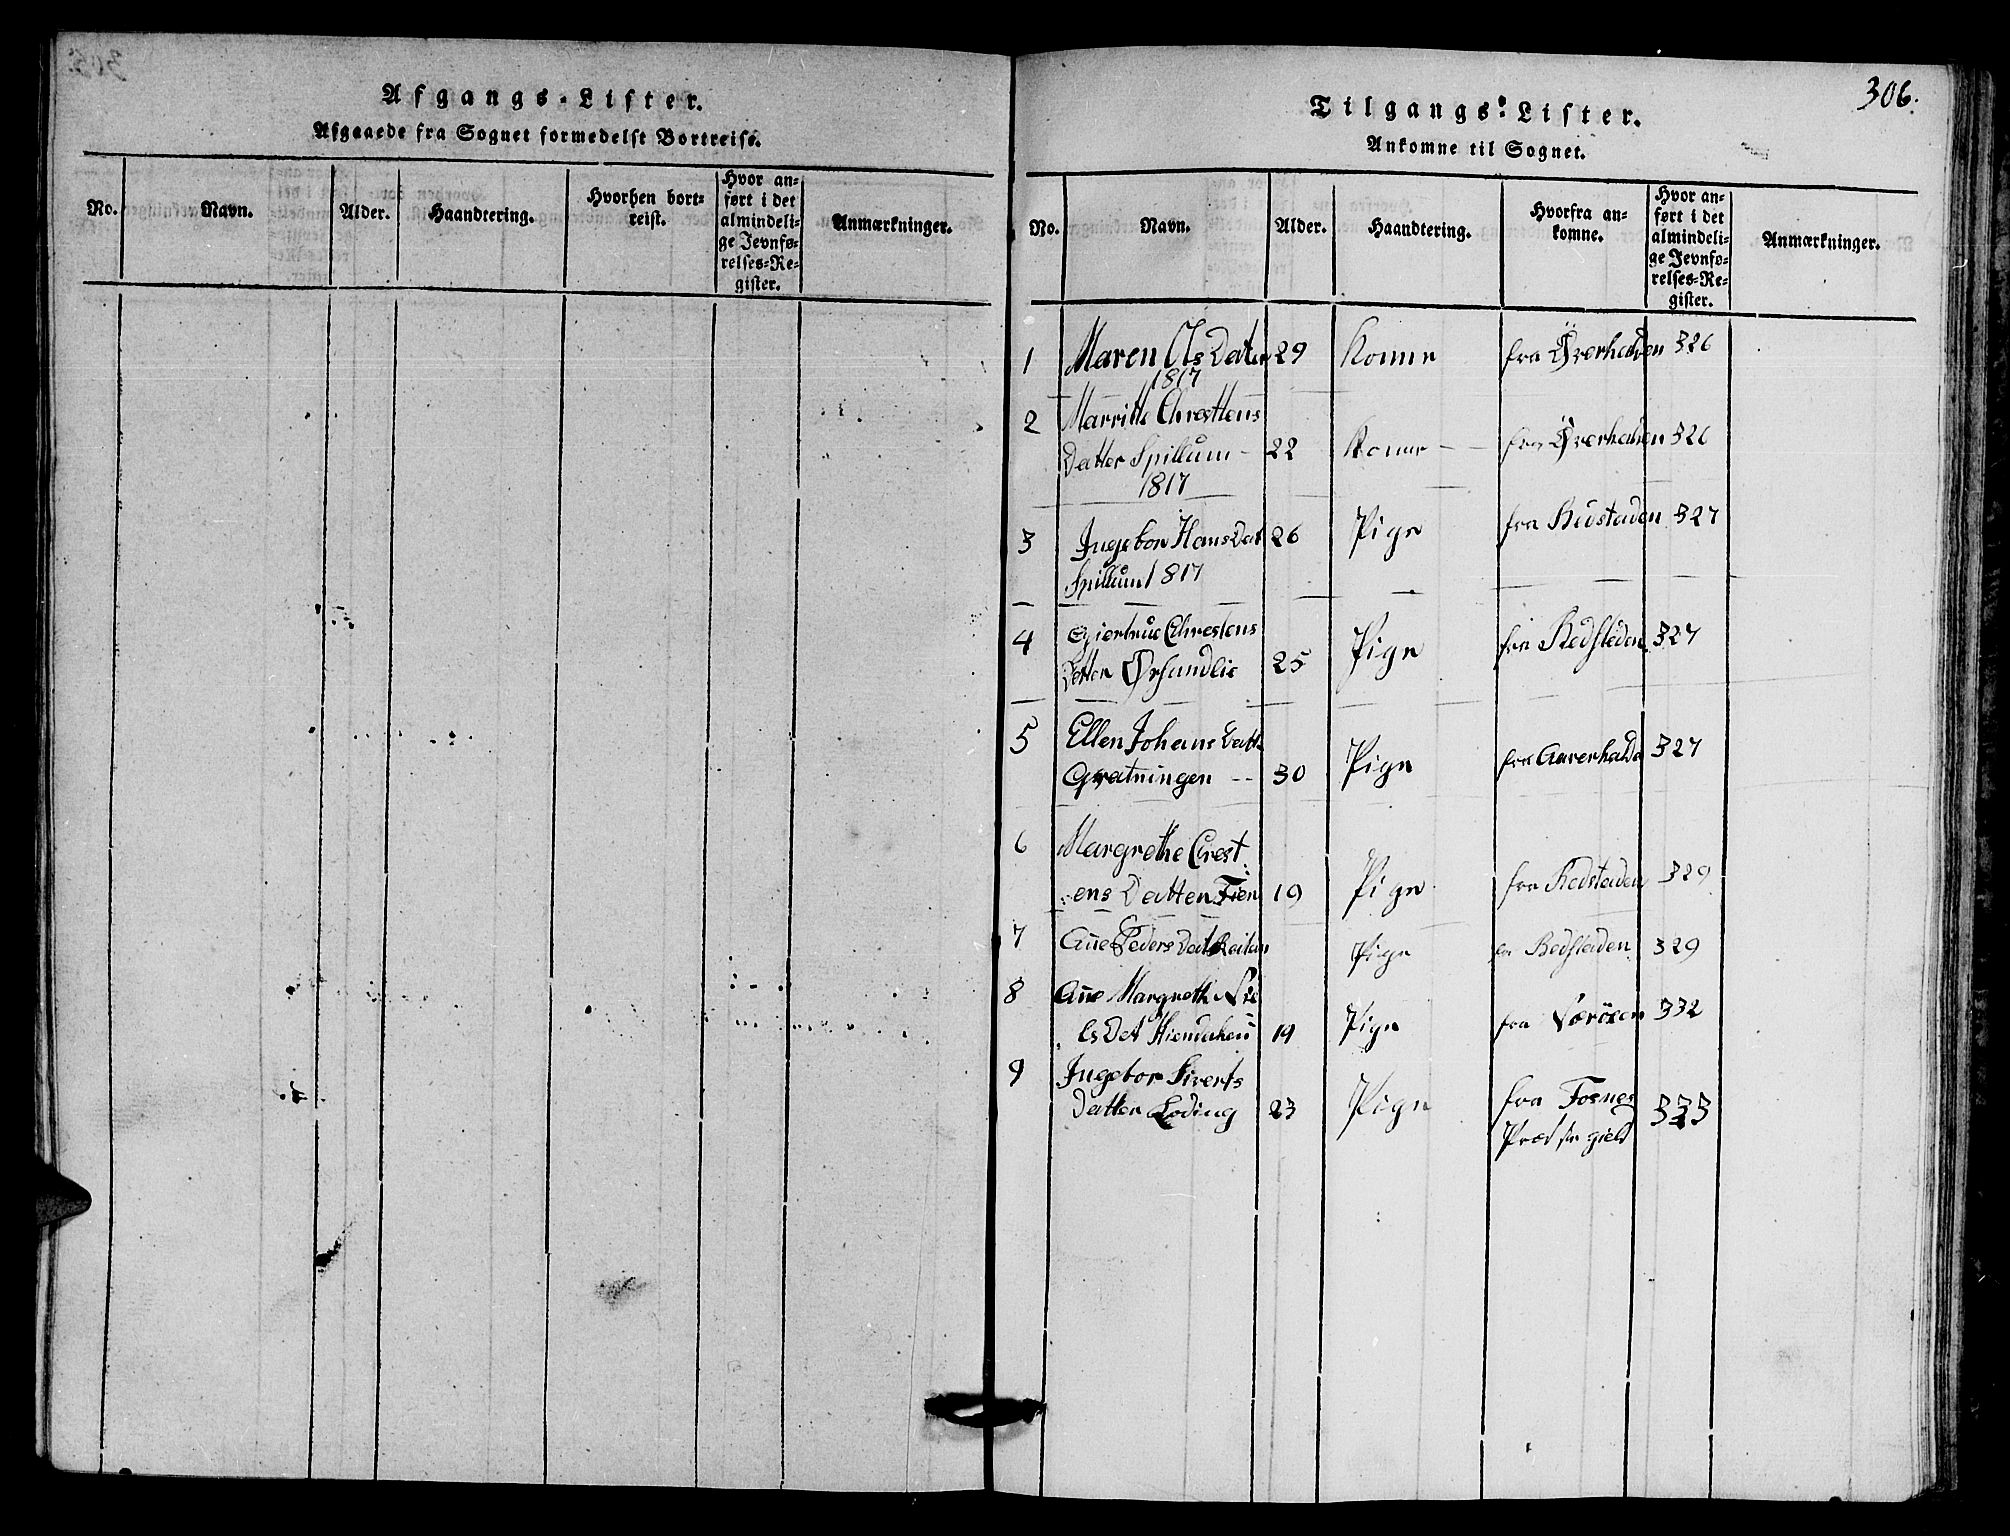 Afgangs-Lister.
Afgaaede fra Sognet formedelst Bortreise.
No. Navn. Alder. Haandtering. Hvorhen bort-
reist. Hvor an-
ført i det
almindeli-
ge Jevnfø-
relses-Re-
gister. Anmærkninger.
306.
Tilgangs-Lister.
Ankomne til Sognet.
No. Navn. Alder. Haandtering. Hvorfra an-
komne. Hvor an-
ført i det
almindeli-
ge Jevnfø-
relses-Re-
gister. Anmærkninger.
1 Maren Ols Dater 29 Konne fra Överhalden 326
1817
2 Marrithe Chresttens
Datter Spillum - 22 Konne - fra Överhalden 326
1817
3 Ingebor Hans Dat 26 Pige fra Bedstaden 327
Spillum 1817
4 Giertrue Chrestens
Datter Ørsandlie 25 Pige fra Bedsteden 327
5 Ellen Johans Datt
Gratningen -- 30 Pige fra Aaverhalda 327
6 Margrethe Crest
:ens Datter Fien 19 Pige fra Bedstaden 329
7 Añe Peders Dat Reitan Pige fra Bedstaden 329
8 Añe Margreth Nie
ls Dat 19 Pige fra 332
9 Ingebor Siverts
Datter Loding 23 Pige fra Fosnes 333
Præstegield